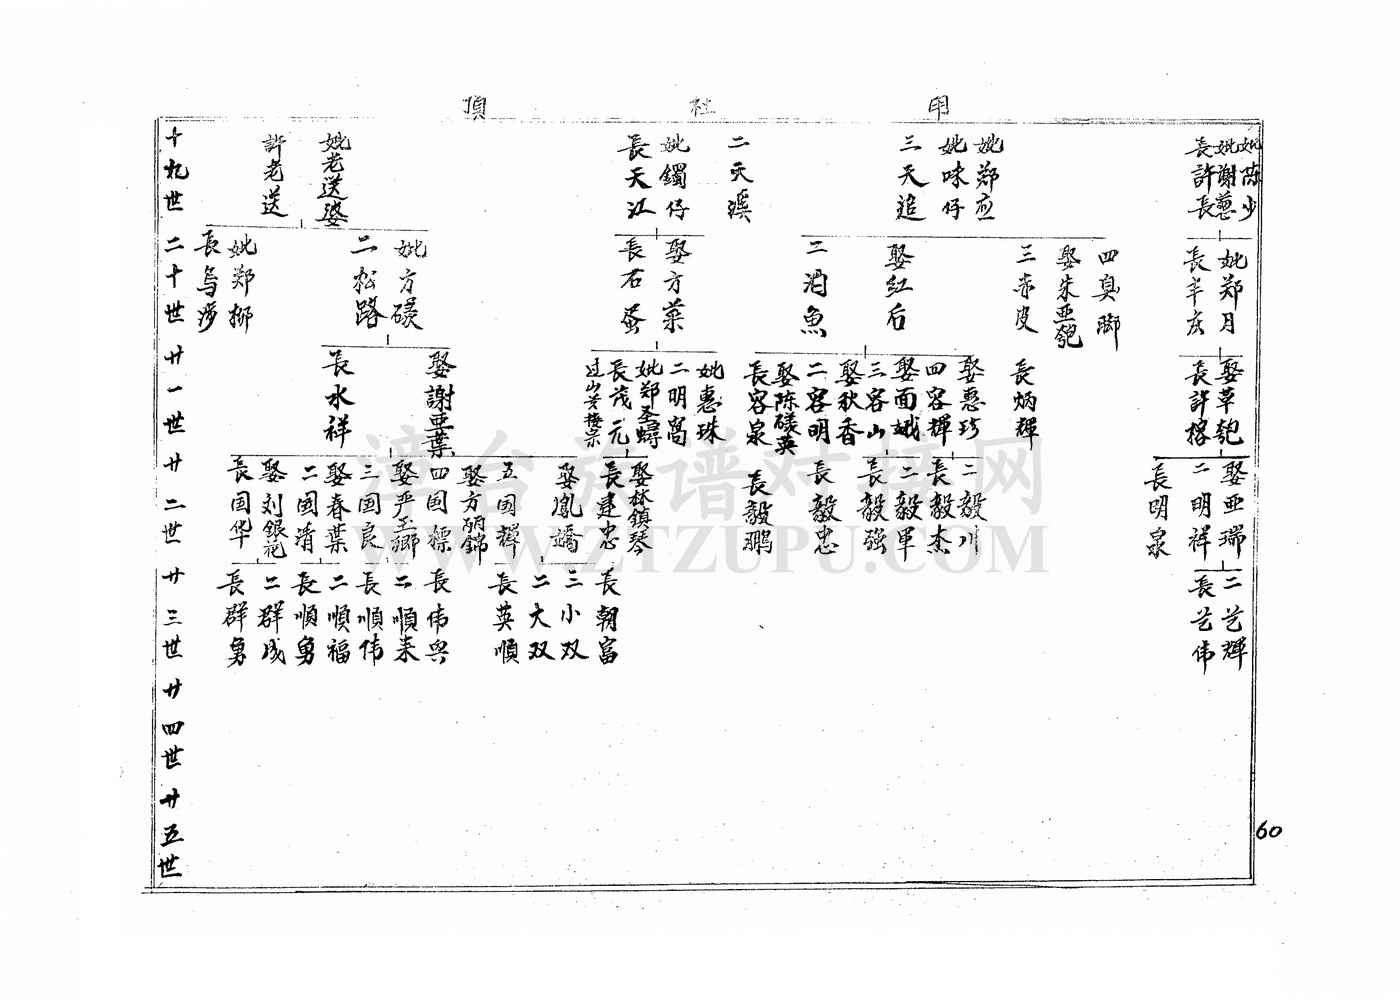 頂 社 用
十九世
許老送
妣老送婆
長天江
妣鐲仔
二天溪
三天追
妣味仔
妣郑应
長許長
妣謝蔥
妣陈少
二十世
長烏沙
妣郑柳
二松路
妣方磺
長石蛋
娶方菜
二泪魚
娶红后
三赤皮
娶朱亜匏
四臭脚
長羊底
妣郑月
廿一世
長水祥
娶謝亜葉
过山芳接宗
長茂元
妣郑圣蟳
二明窩
妣惠珠
長容泉
娶陈磺英
二容明
娶秋香
三容山
娶面娥
四容輝
娶惠珍
長炳輝
長許榕
娶草匏
廿二世
長国华
娶刘银花
二国清
娶春葉
三国良
娶严玉卿
四国標
娶方丽錦
五国輝
娶凰嬌
長建忠
娶林鎮琴
長毅鹏
長毅忠
長毅强
二毅單
長毅杰
二毅川
長明泉
二明祥
娶亜瑞
廿三世
長群勇
二群成
長順勇
二順福
長順伟
二順来
長伟兴
長英順
二大双
三小双
長朝富
長艺伟
二艺輝
廿四世
廿五世
60
漳台族谱对接网
WWW.ZTZUPU.COM